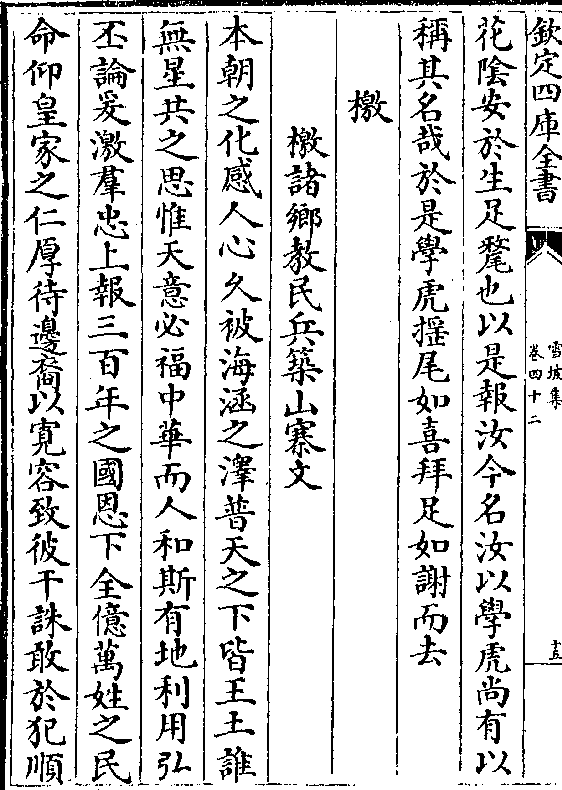 欽定四庫全書
雪坡集
卷四十二
十五
花陰安於生足氂也以是報汝今名汝以學虎尚有以
稱其名哉於是學虎揺尾如喜拜足如謝而去
檄
檄諸鄉教民兵築山寨文
本朝之化感人心久被海涵之澤普天之下皆王土誰
無星共之思惟天意必福中華而人和斯有地利用弘
丕論爰激羣忠上報三百年之國恩下全億萬姓之民
命仰皇家之仁厚待邊裔以寛容致彼干誅敢於犯順